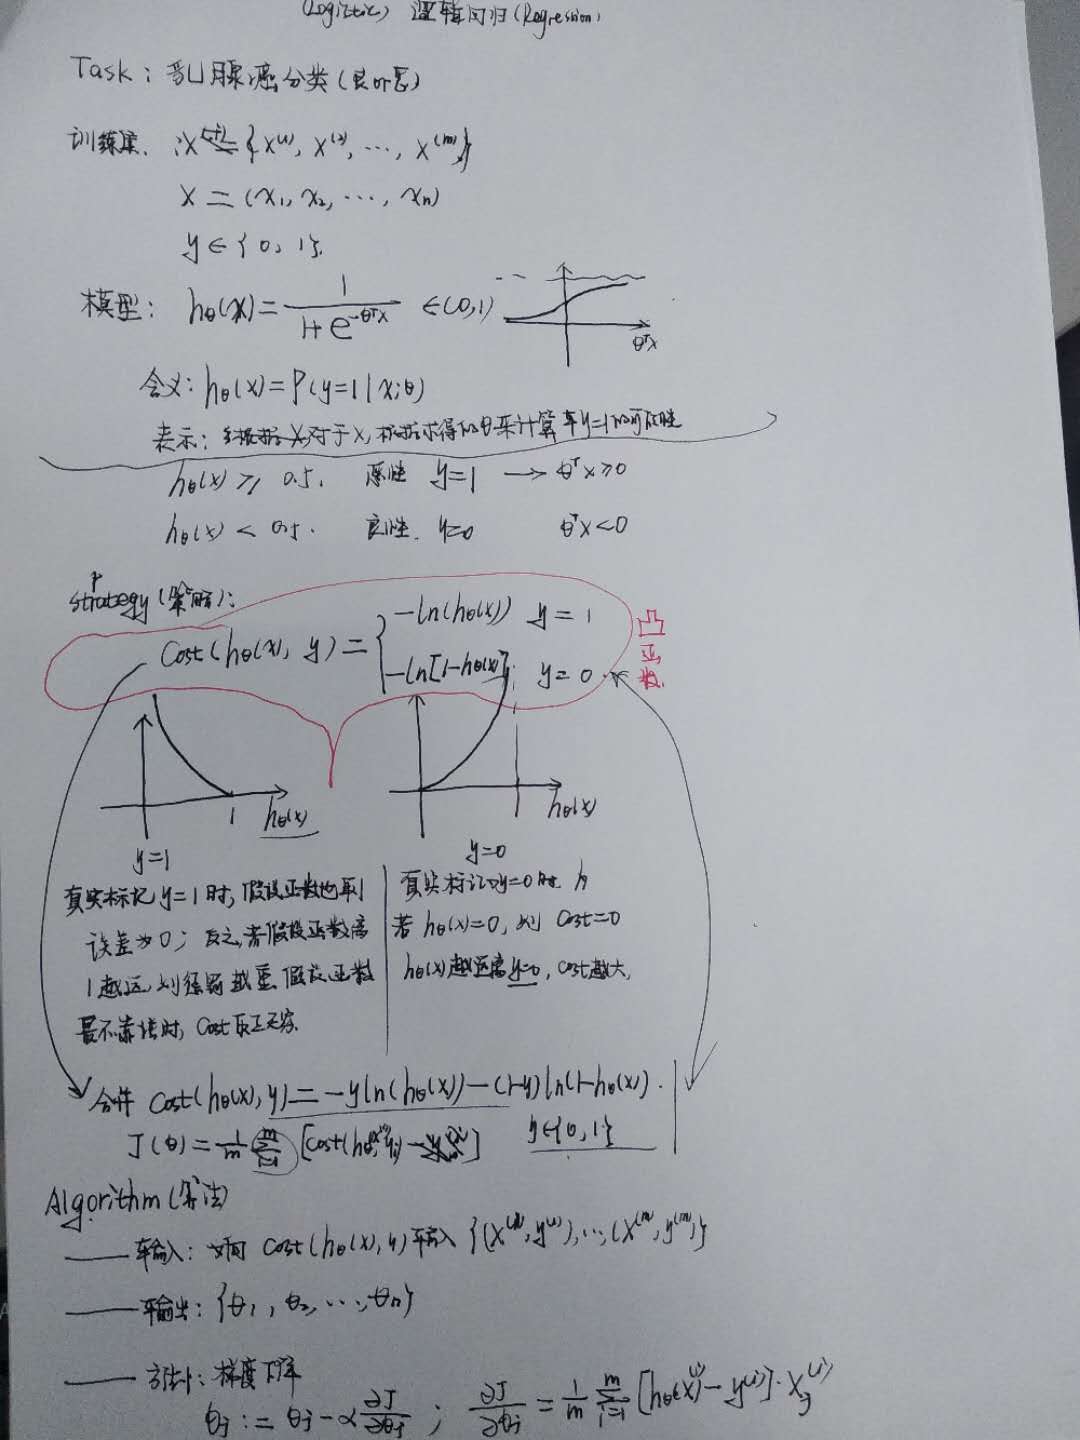 (Logistic) 逻辑回归 (Regression)
Task: 乳腺癌分类 (良or恶)
训练集: X = {X⁽¹⁾, X⁽²⁾, ..., X⁽ᵐ⁾}
X = (x₁, x₂, ..., xₙ)
y ∈ {0, 1}.
模型: hθ(x) = 1 / (1 + e^(-θᵀx)) ∈ (0, 1)
θᵀx
含义: hθ(x) = P(y=1 | x;θ)
表示: 对于x, 根据求得的θ来计算y=1的可能性
hθ(x) ≥ 0.5. 恶性 y=1 → θᵀx ≥ 0
hθ(x) < 0.5. 良性. y=0 θᵀx < 0
Strategy (策略):
Cost(hθ(x), y) = { -ln(hθ(x)) y = 1
-ln[1-hθ(x)], y = 0.
凸函数.
1 hθ(x)
y=1
1 hθ(x)
y=0
真实标记 y=1时, 假设函数也取
误差为0; 反之, 若假设函数离
1越远, 则惩罚越重, 假设函数
最不靠谱时, Cost 无穷.
真实标记 y=0时
若 hθ(x)=0, 则 Cost=0
hθ(x)越远离y=0, cost越大.
合并 Cost(hθ(x), y) = -y ln(hθ(x)) - (1-y) ln(1-hθ(x)).
J(θ) = 1/m Σᵢ₌₁ᵐ [Cost(hθ, y)] y∈{0, 1}
Algorithm (算法)
—— 输入: Cost(hθ(x), y) 输入 {(X⁽¹⁾, y⁽¹⁾), ..., (X⁽ᵐ⁾, y⁽ᵐ⁾)}
—— 输出: {θ₁, θ₂, ..., θₙ}
—— 方法: 梯度下降
θj := θj - α ∂J/∂θj ; ∂J/∂θj = 1/m Σᵢ₌₁ᵐ [hθ(x⁽ⁱ⁾) - y⁽ⁱ⁾] · xj⁽ⁱ⁾